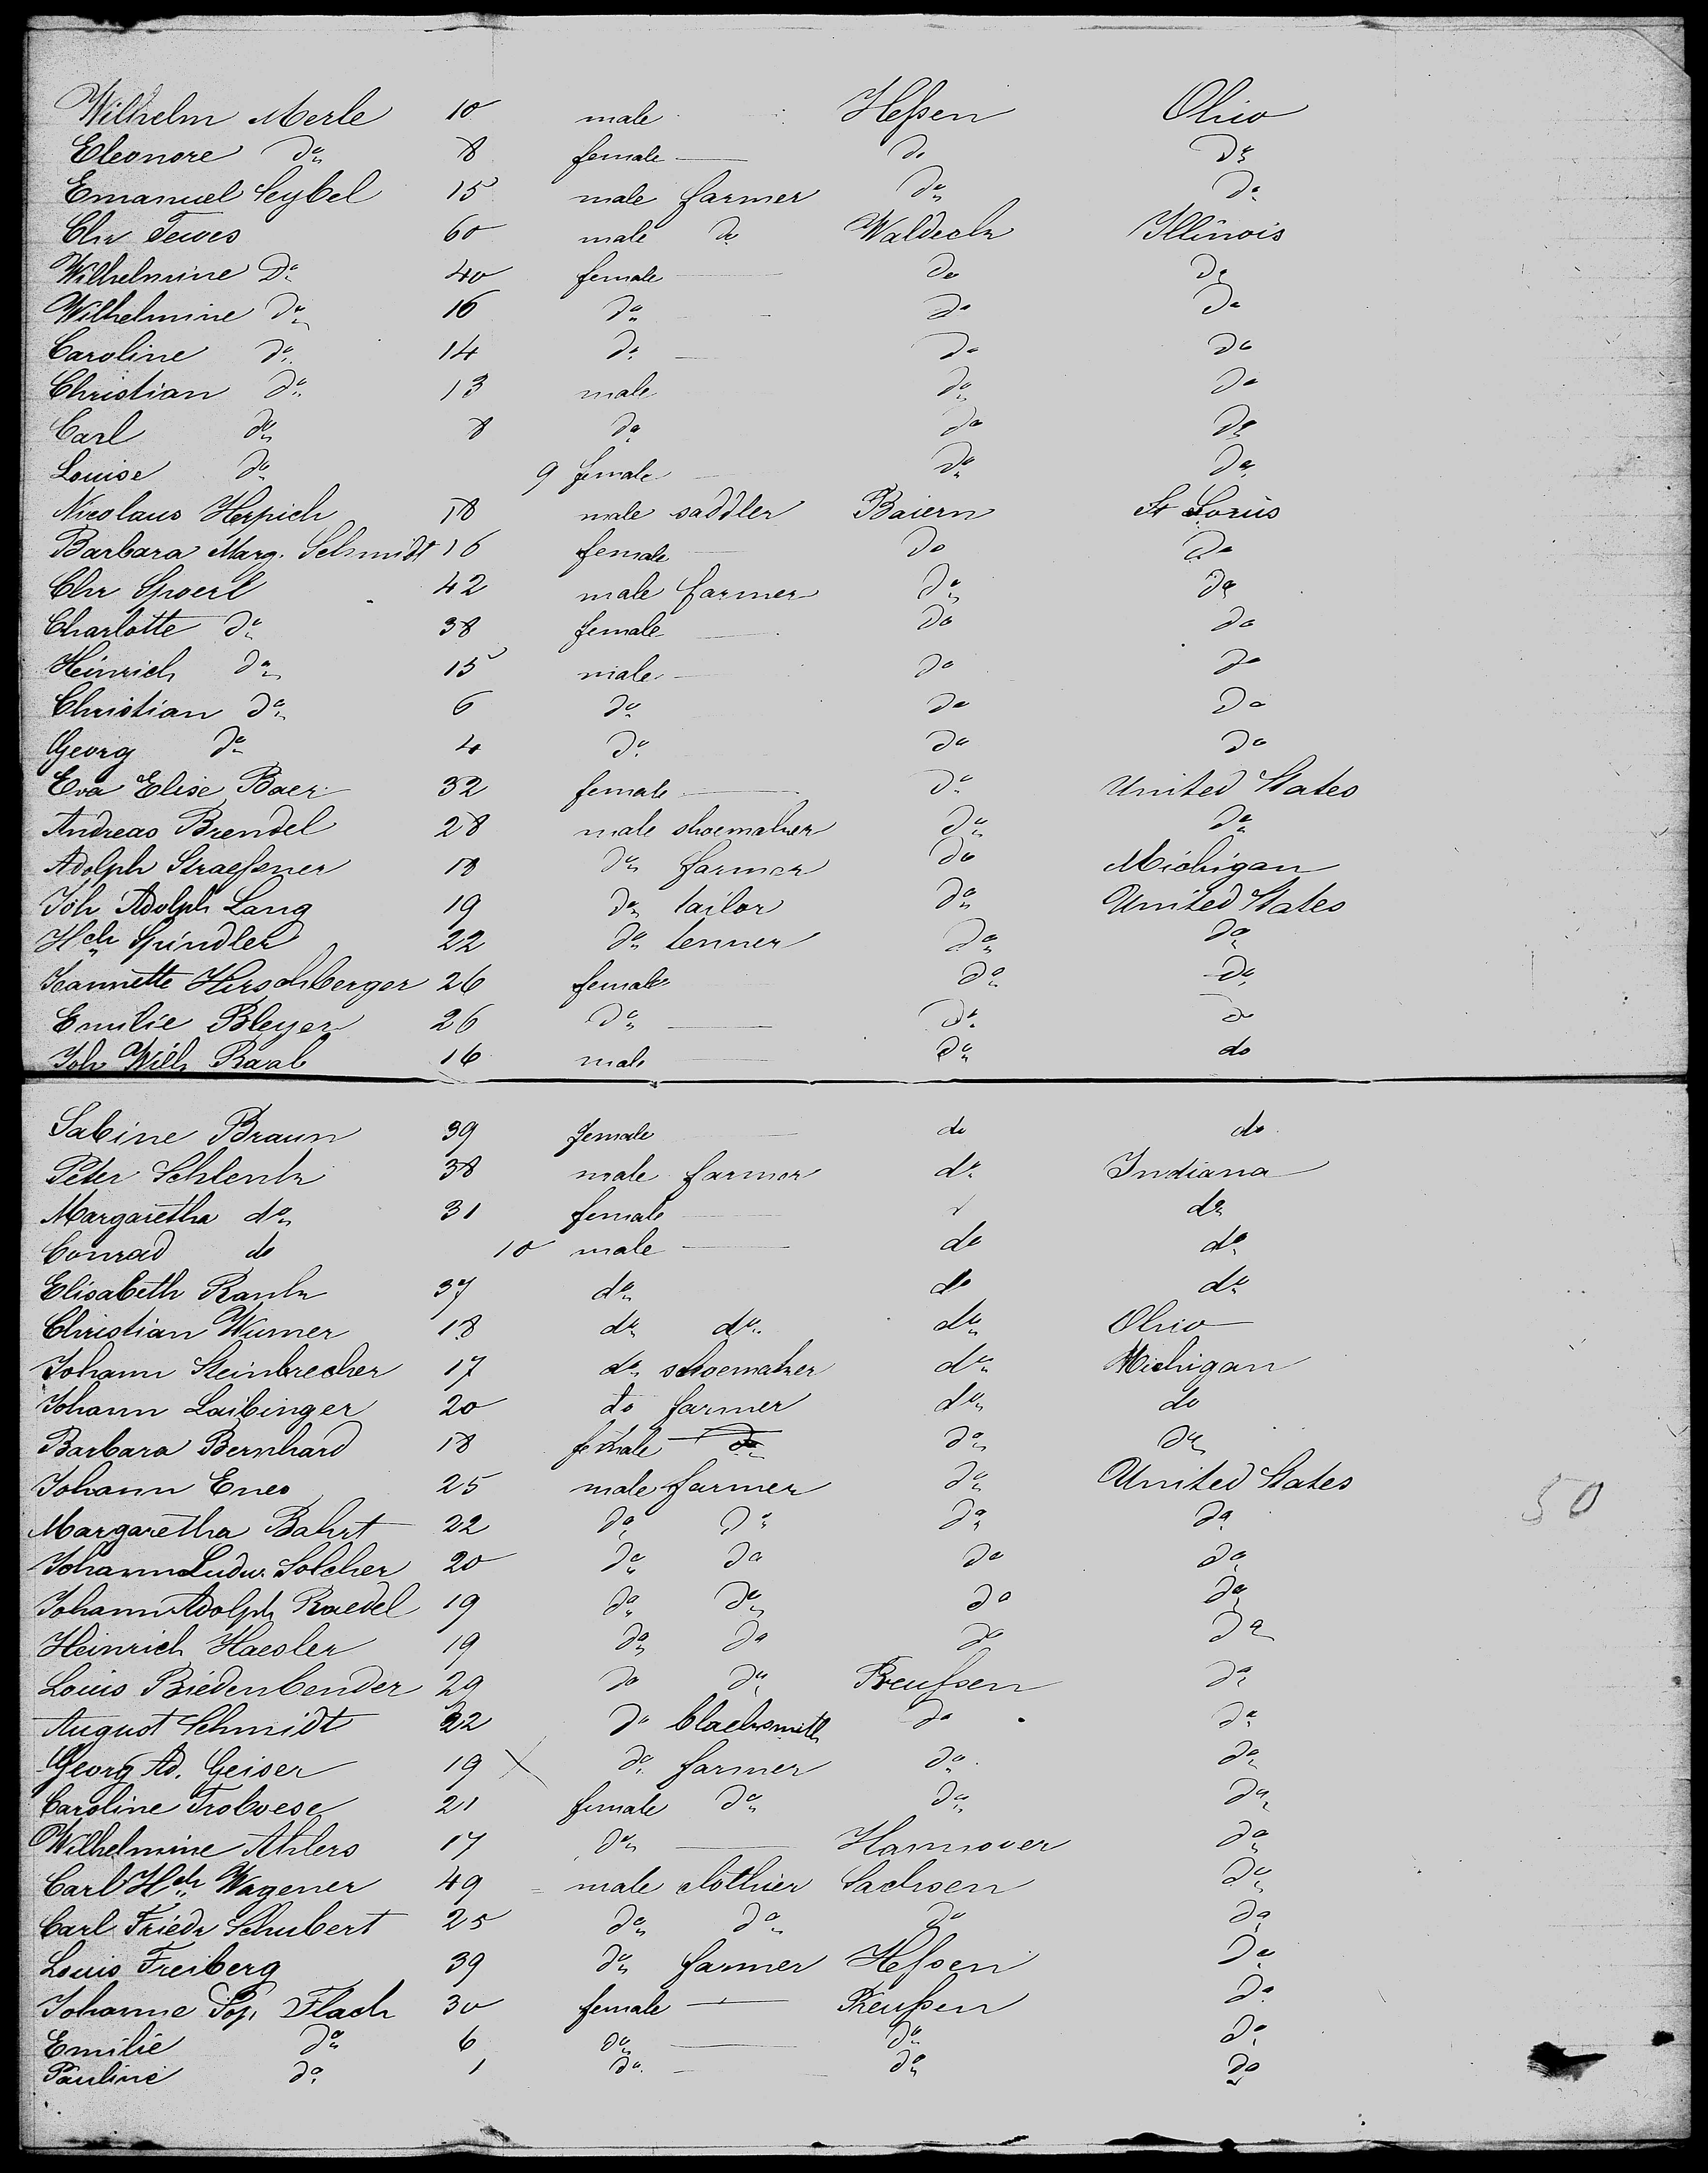 Wilhelm Merle 10 male Heßen Ohio
Eleonore do 8 female — do do
Emanuel Seybel 15 male farmer do do
Chr Tewes 60 male do Waldeck Illinois
Wilhelmine do 40 female — do do
Wilhelmine do 16 do — do do
Caroline do 14 do — do do
Christian do 13 male do do
Carl do 8 do do do
Louise do 9 female do do
Nicolaus Herpich 18 male saddler Baiern St Louis
Barbara Marg. Schmidt 16 female — do do
Chr Spoerl 42 male farmer do do
Charlotte do 38 female — do do
Heinrich do 15 male — do do
Christian do 6 do do do
Georg do 4 do do do
Eva Elise Baer 32 female — do United States
Andreas Brendel 28 male shoemaker do do
Adolph Straeßner 18 do farmer do Michigan
Joh Adolph Lang 19 do tailor do United States
Hch Spindler 22 do tenner do do
Jeannette Hirschberger 26 female do do
Emilie Bleyer 26 do — do do
Joh Wilh Raab 16 male — do do
Sabine Braun 39 female — do do
Peter Schlenk 38 male farmer do Indiana
Margaretha do 31 female — do
Conrad do 10 male — do do
Elisabeth Rank 37 do do do
Christian Wurner 18 do do do Ohio
Johann Steinbrecher 17 do schoemaker do Michigan
Johann Laibinger 20 do farmer do do
Barbara Bernhard 18 female do do do
Johann Enes 25 male farmer do United States
Margaretha Bahrt 22 do do do do
Johann Ludw. Solcher 20 do do do do
Johann Adolph Raedel 19 do do do do
Heinrich Haesler 19 do do do do
Louis Biedenbender 29 do do Preußen do
August Schmidt 22 do blacksmith do do
Georg Ad. Geiser 19 X do farmer do do
Caroline 21 female do do do
Wilhelmine Ahlers 17 do — Hannover do
Carl Hch Wagener 49 male clothier Sachsen do
Carl Friedr Schubert 25 do do do do
Louis Freiberg 39 do farmer Heßen do
Johanne Flach 30 female — Preußen do
Emilie do 6 do — do do
Pauline do 1 do — do do
50